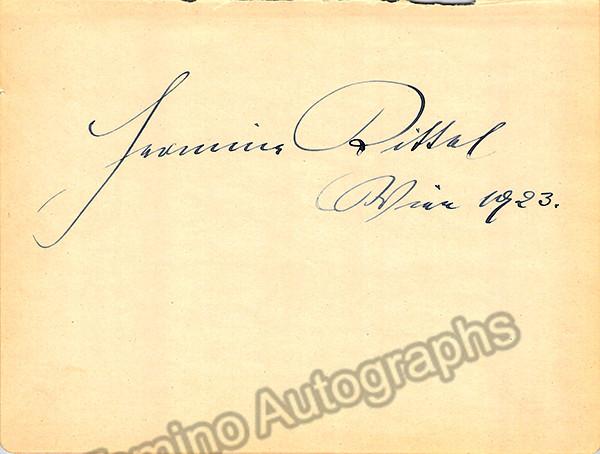 Hermine Kittel
Wien 1923.
Tamino Autographs